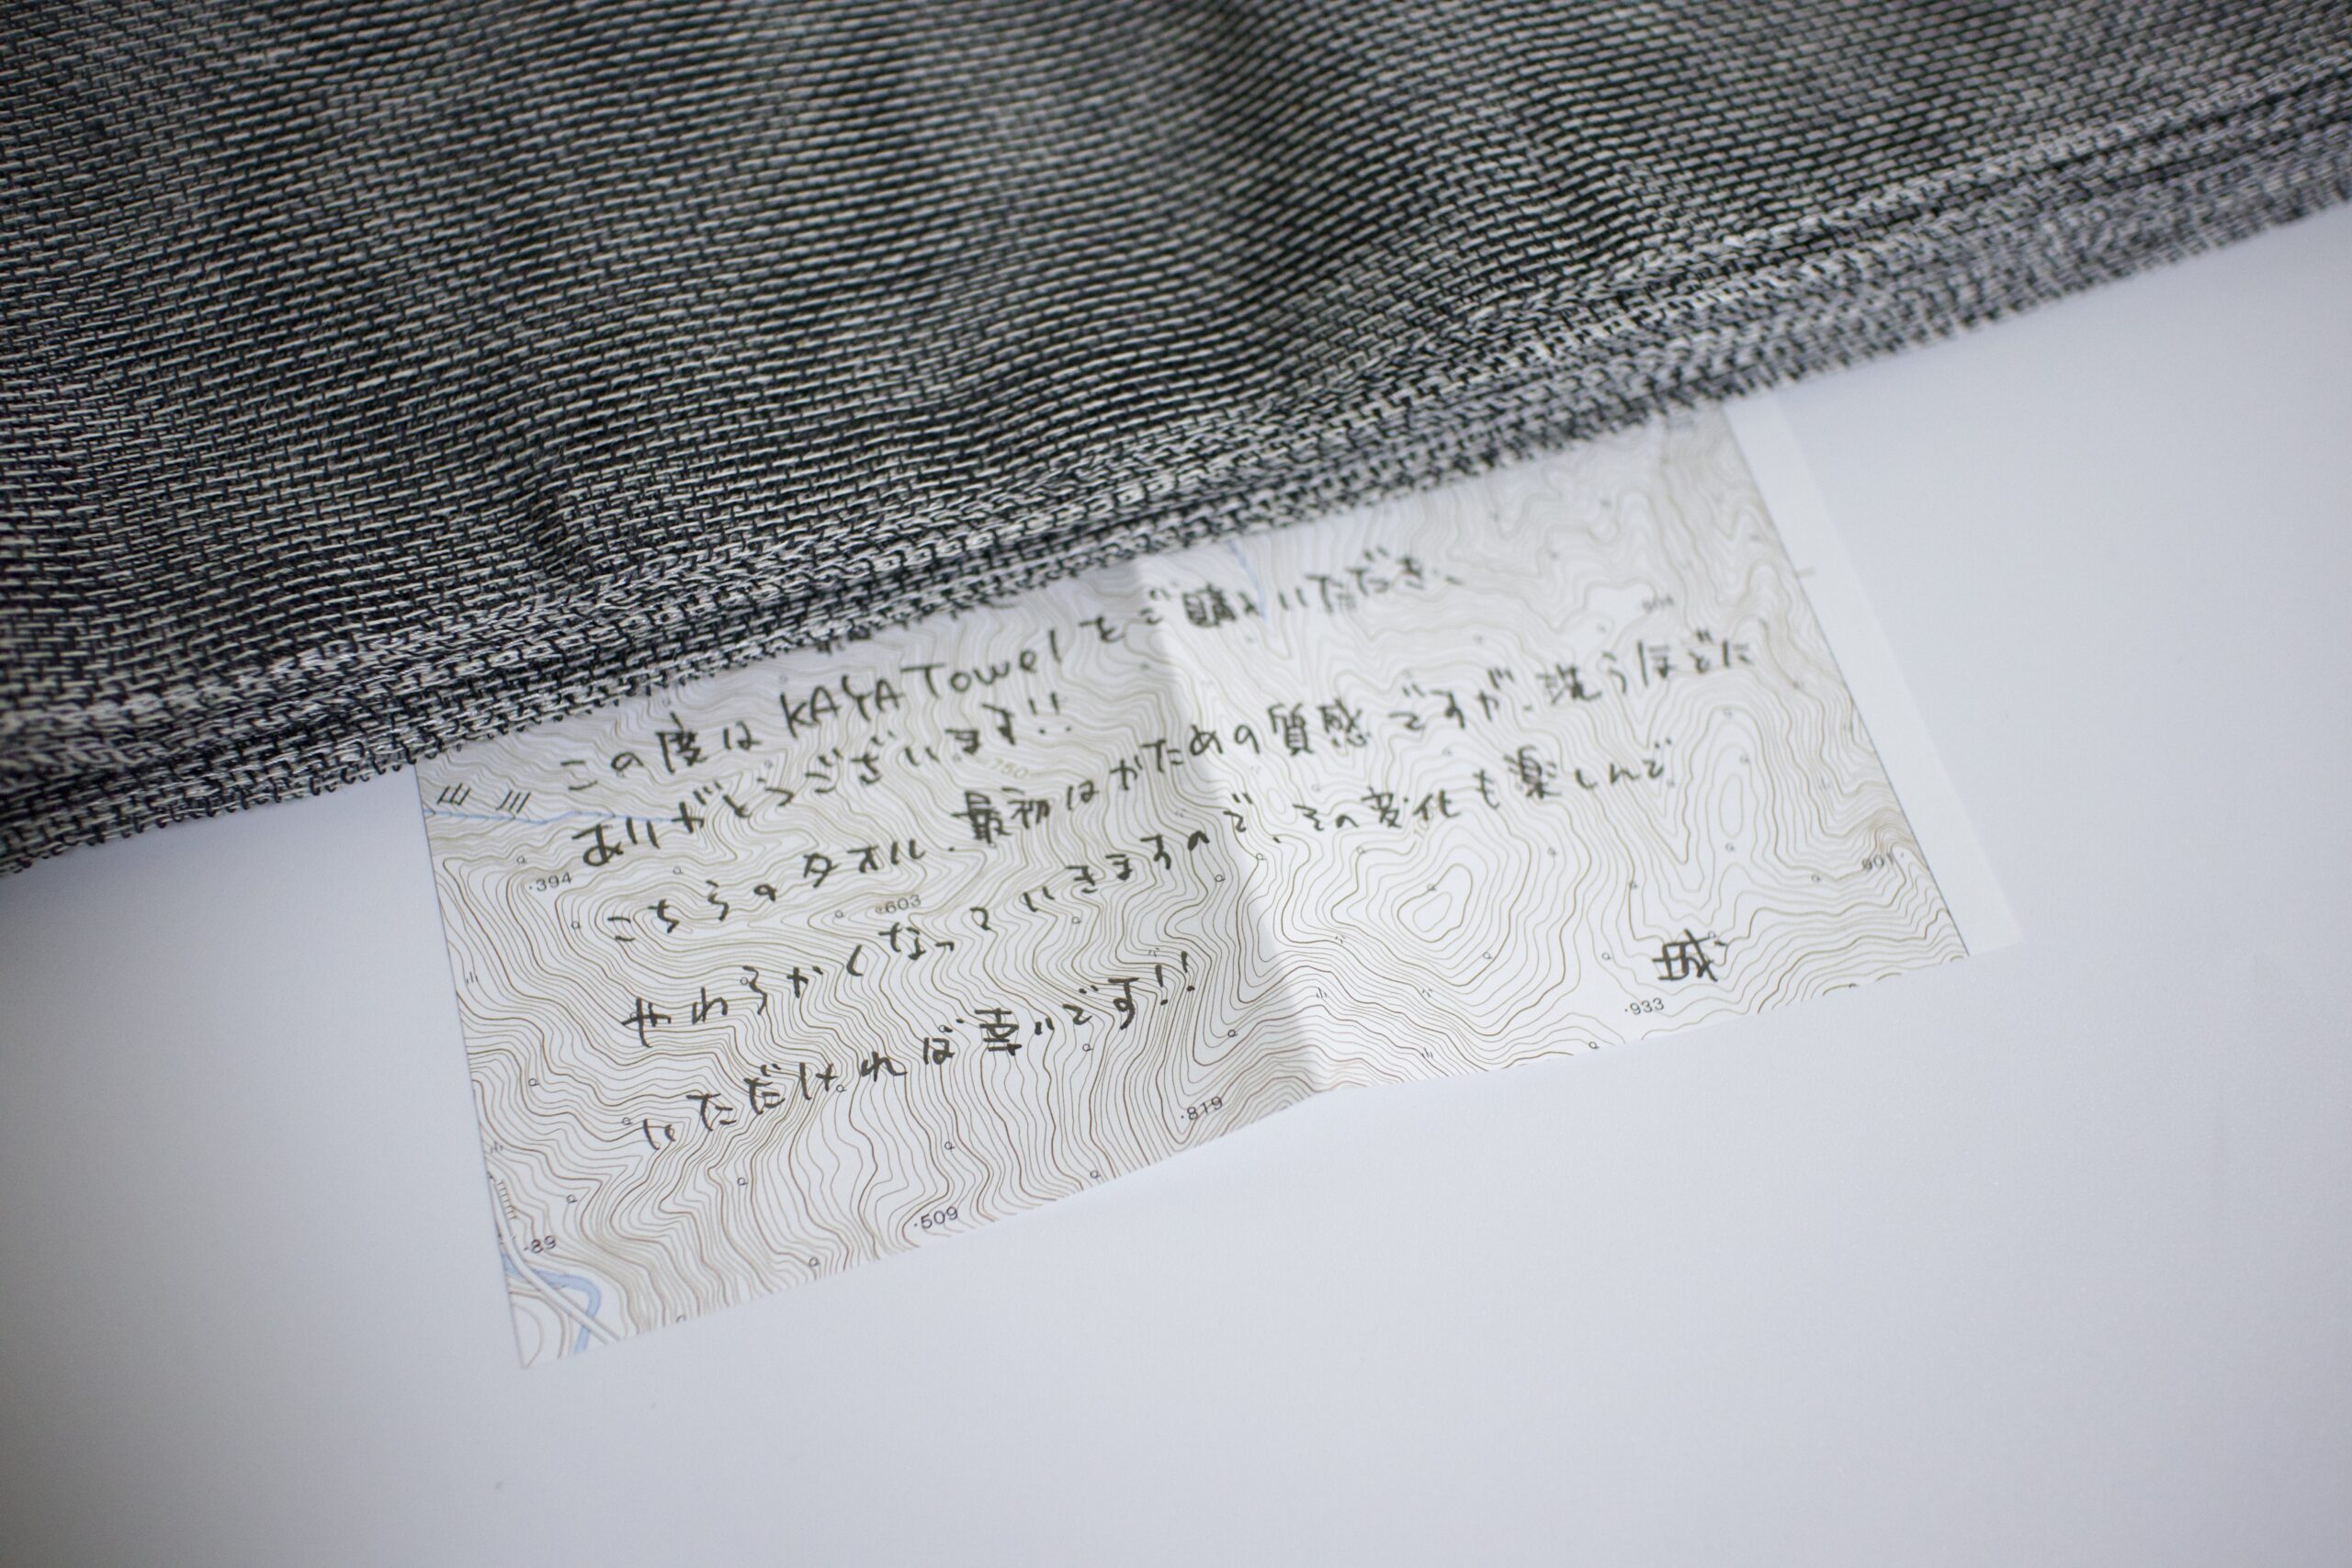 この度は KAYA Towel をご購入いただき、
ありがとうございます!!
こちらのタオル、最初はかための質感ですが、洗うほどに
やわらかくなっていきますので、その変化も楽しんで
いただければ幸いです!!
750
394
603
901
933
819
509
89